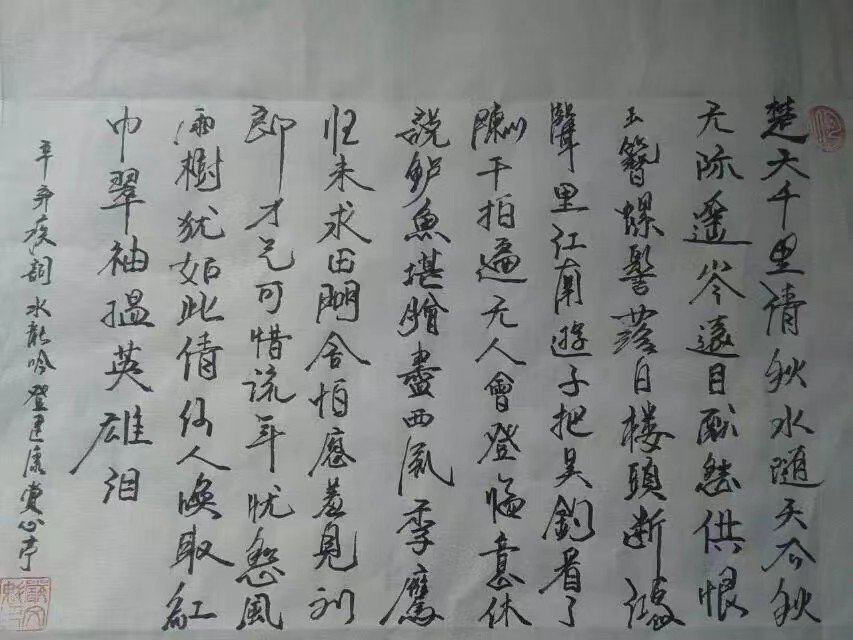 楚天千里清秋水随天去秋
无际遥岑遠目献愁供恨
玉簪螺髻落日楼頭断鴻
聲里江南遊子把吴鈎看了
阑干拍遍无人會登临意休
説鲈魚堪膾盡西風季鷹
归未求田問舍怕應羞見刘
郎才气可惜流年忧愁風
雨樹犹如此倩何人唤取紅
巾翠袖揾英雄泪
辛弃疾詞水龍吟登建康赏心亭